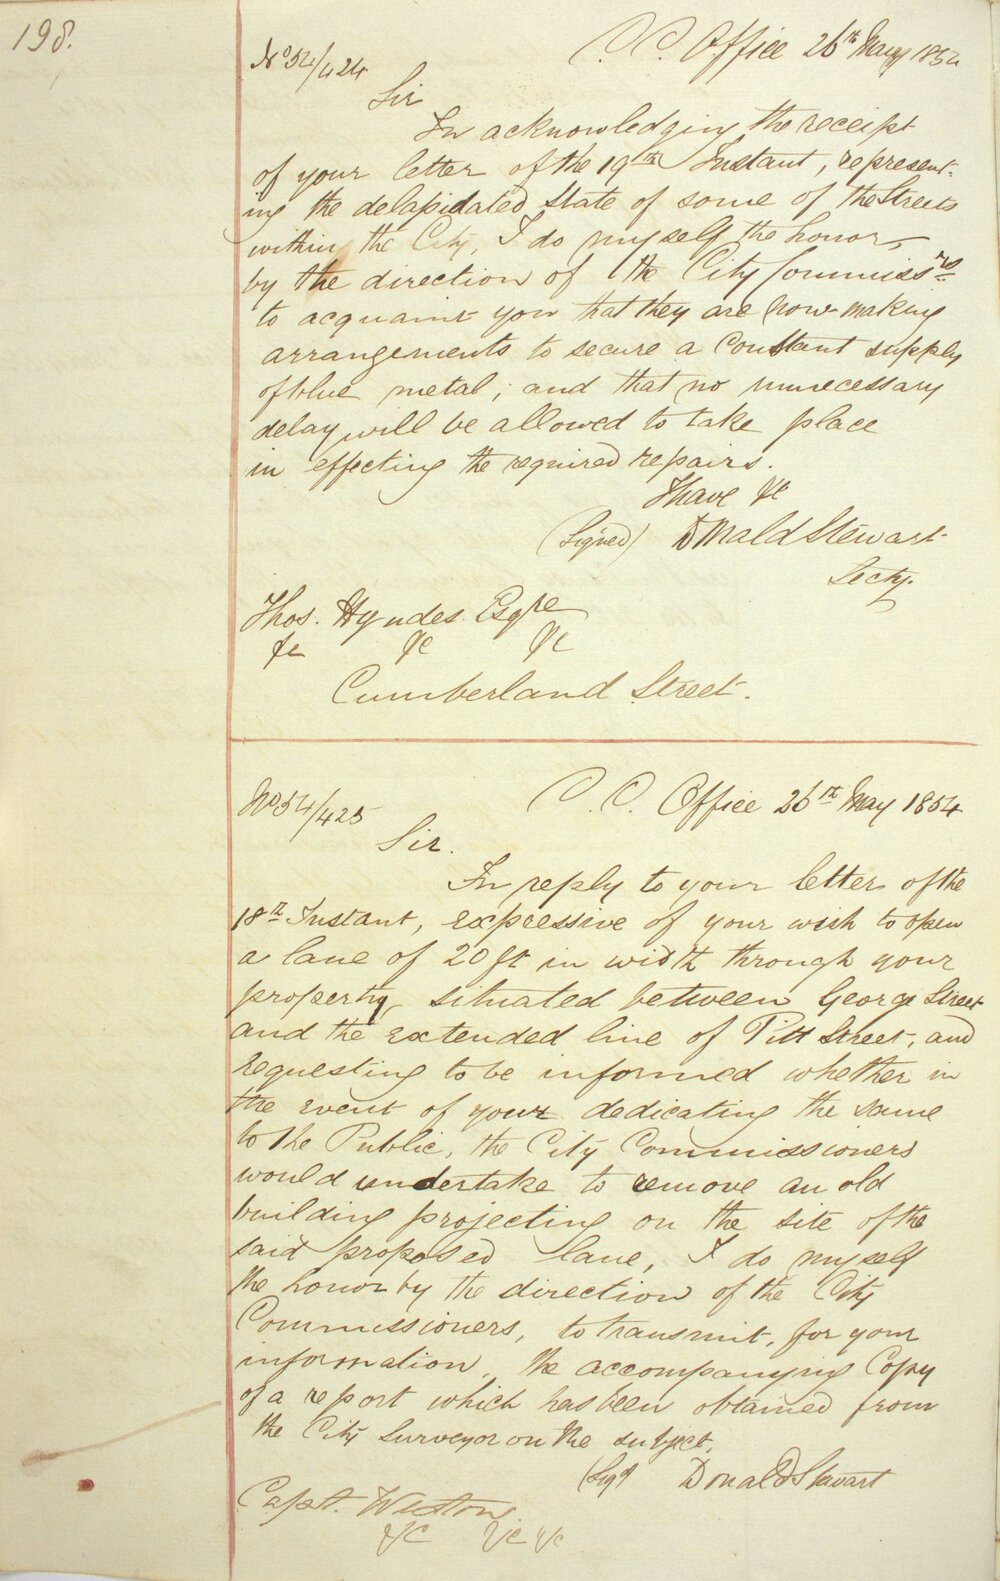 198.
No 54/424
C. C. Office 26th May 1854
Sir
In acknowledging the receipt
of your letter of the 19th Instant, represent-
ing the delapidated State of some of the Streets
within the City, I do myself the honor,
by the direction of the City Commissrs
to acquaint you that they are now making
arrangements to secure a Constant supply
of blue metal; and that no unnecessary
delay will be allowed to take place
in effecting the required repairs.
I have &c
(Signed) Donald Stewart
Secty.
Thos. Hyndes Esqre
&c &c &c
Cumberland Street.
No 54/425
C. C. Office 26th May 1854
Sir.
In reply to your letter of the
18th Instant, expressive of your wish to open
a lane of 20 ft in width through your
property, situated between George Street
and the extended line of Pitt Street, and
requesting to be informed whether in
the event of your dedicating the same
to the Public, the City Commissioners
would undertake to remove an old
building projecting on the site of the
said proposed lane, I do myself
the honor by the direction of the City
Commissioners, to transmit, for your
information, the accompanying Copy
of a report which has been obtained from
the City Surveyor on the subject.
(Sigd Donald Stewart
Capt. Weston
&c &c &c